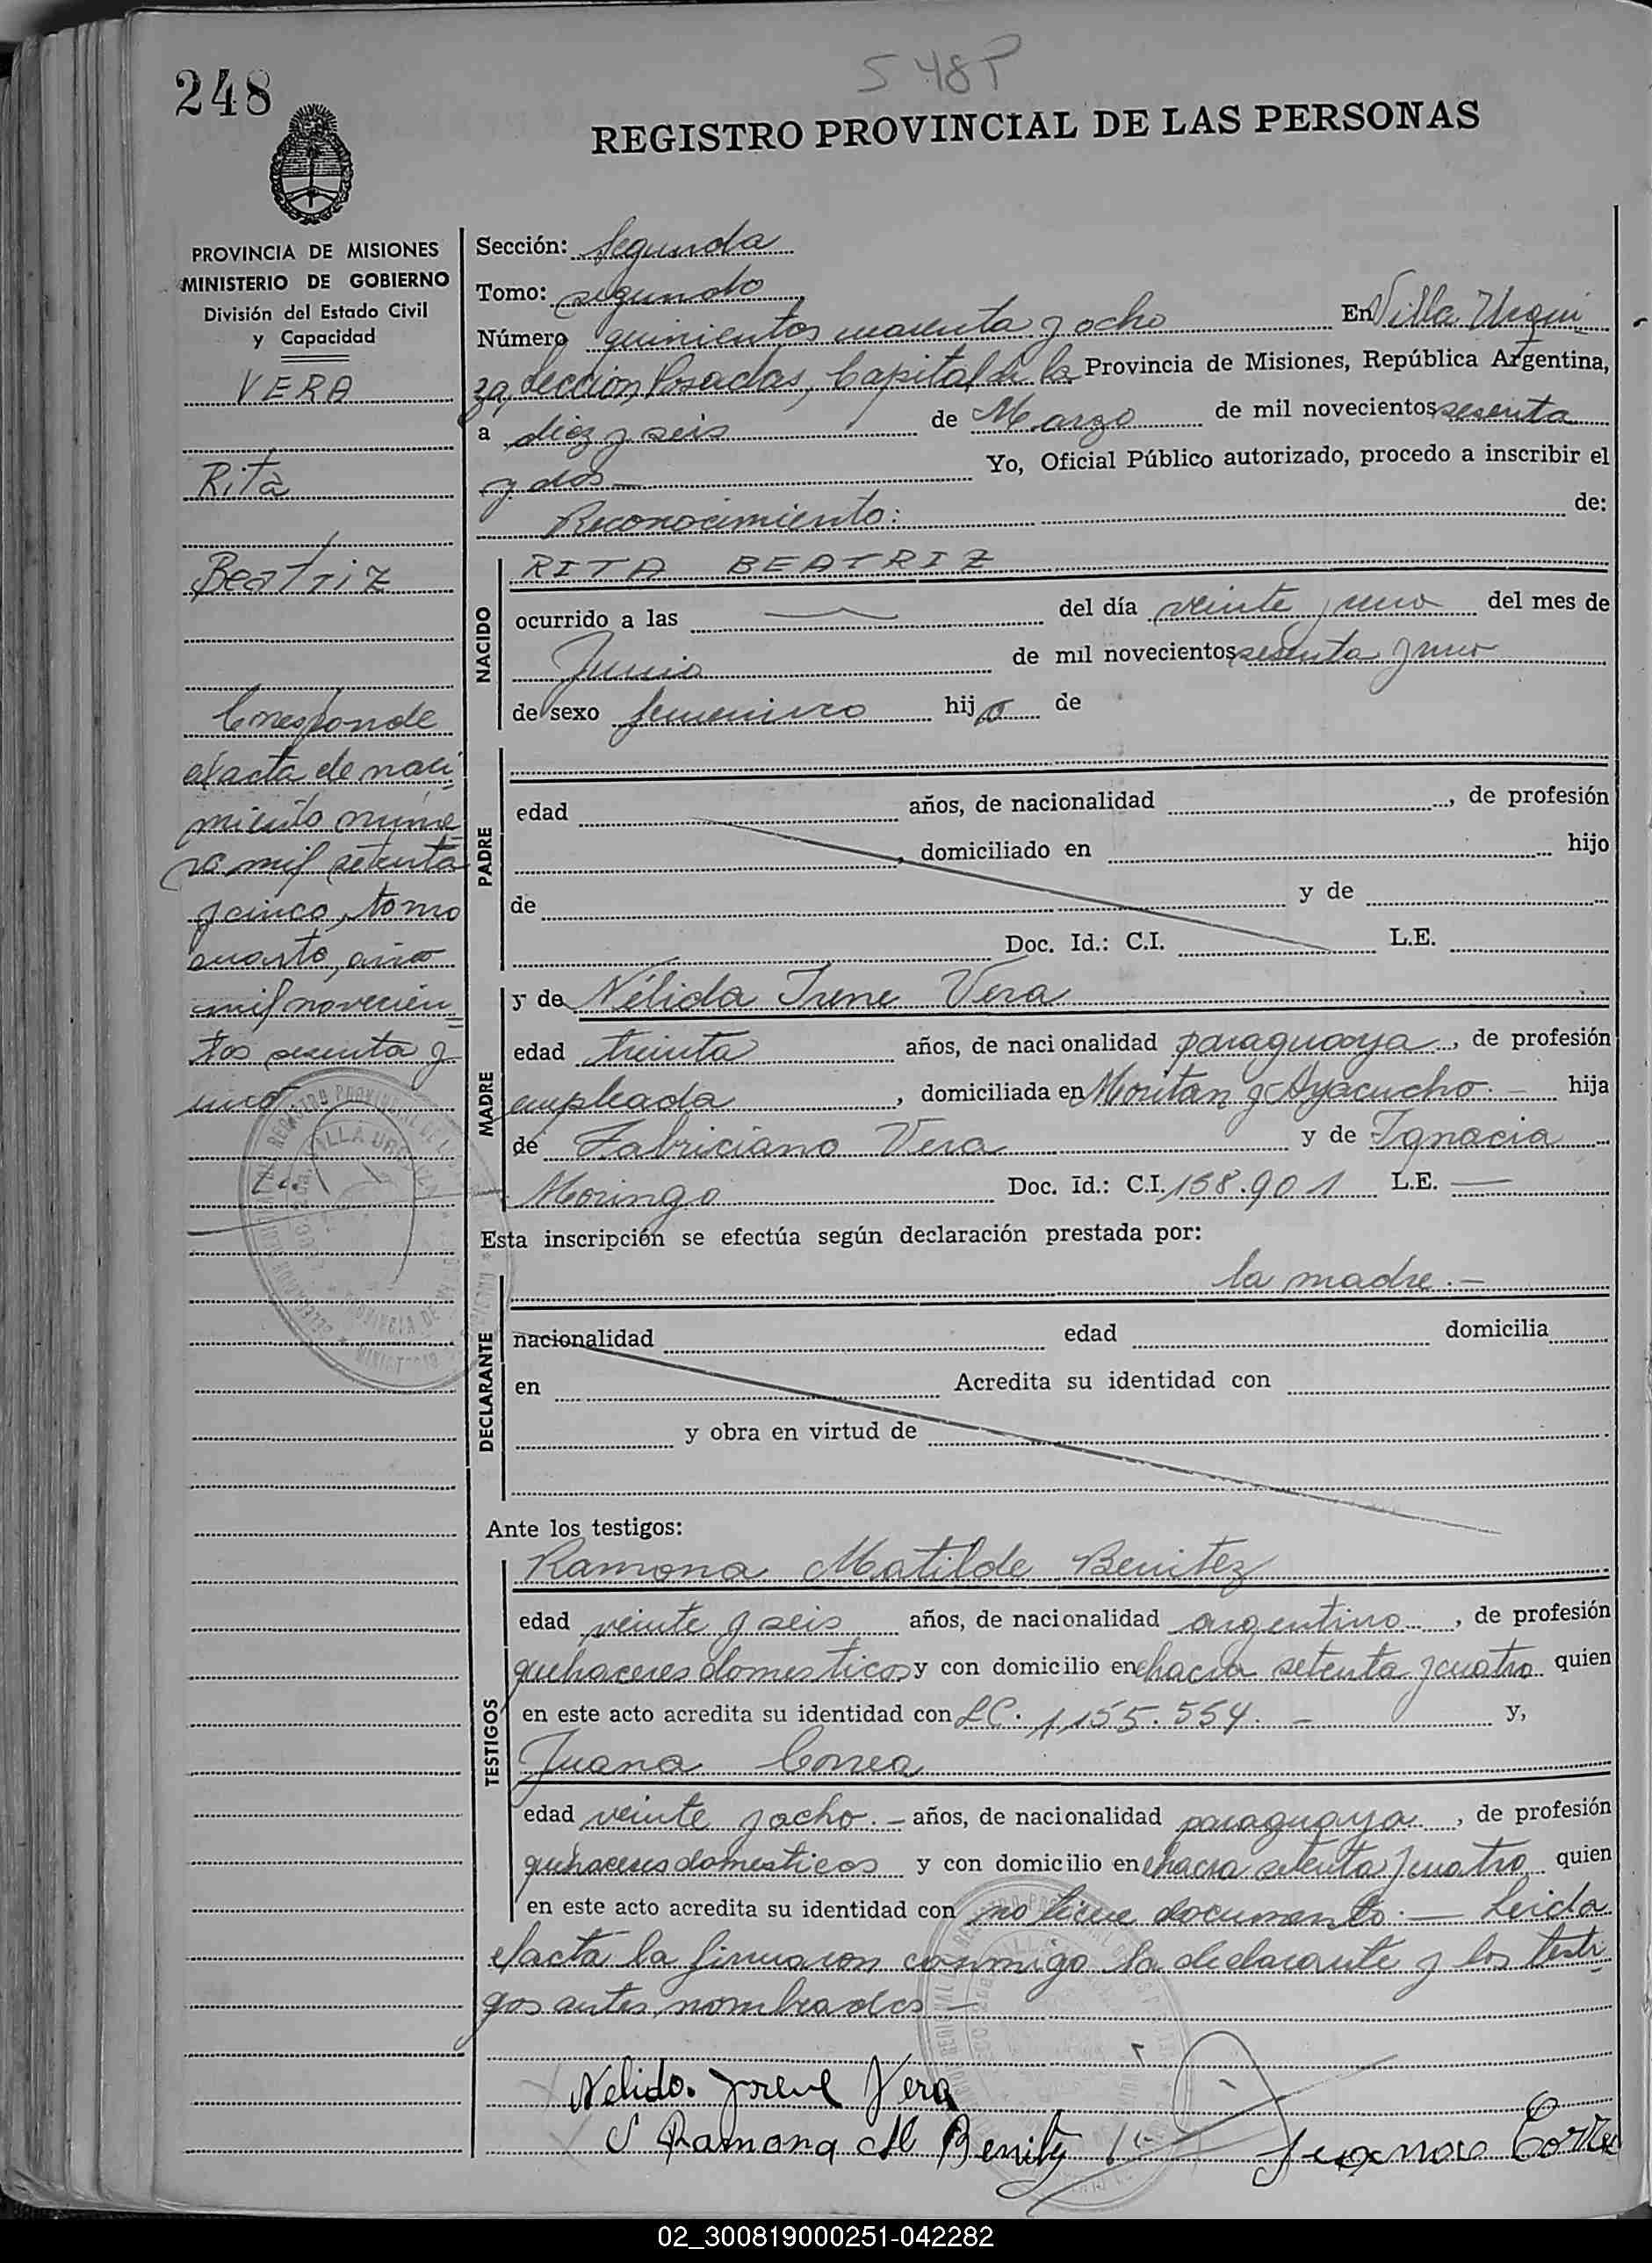 248
548P
REGISTRO PROVINCIAL DE LAS PERSONAS
PROVINCIA DE MISIONES
MINISTERIO DE GOBIERNO
División del Estado Civil
y Capacidad
VERA
Rita
Beatriz
Corresponde
al acta de naci
miento núme
ro mil setenta
y cinco, tomo
cuarto, año
mil novecien
tos sesenta y
uno
Sección: Segunda
Tomo: segundo
Número quinientos cuarenta y ocho En Villa Urqui
za, Sección Posadas, Capital de la Provincia de Misiones, República Argentina,
a diez y seis de Marzo de mil novecientos sesenta
y dos — Yo, Oficial Público autorizado, procedo a inscribir el
Reconocimiento: de:
NACIDO
RITA BEATRIZ
ocurrido a las — del día veinte y uno del mes de
Junio de mil novecientos sesenta y uno
de sexo femenino hija de
PADRE
edad años, de nacionalidad , de profesión
, domiciliado en hijo
de y de
Doc. Id.: C.I. L.E.
MADRE
y de Nélida Irene Vera
edad treinta años, de nacionalidad paraguaya, de profesión
empleada, domiciliada en Moritan y Ayacucho.— hija
de Fabriciano Vera y de Ignacia
Moringo Doc. Id.: C.I. 158.901 L.E. —
Esta inscripción se efectúa según declaración prestada por:
la madre.—
DECLARANTE
nacionalidad edad domicilia
en Acredita su identidad con
y obra en virtud de
Ante los testigos:
TESTIGOS
Ramona Matilde Benitez
edad veinte y seis años, de nacionalidad argentino, de profesión
quehaceres domesticos y con domicilio en chacra setenta y cuatro quien
en este acto acredita su identidad con LC. 1.155.554. — y,
Juana Correa
edad veinte y ocho.— años, de nacionalidad paraguaya, de profesión
quehaceres domesticos y con domicilio en chacra setenta y cuatro quien
en este acto acredita su identidad con no tiene documento.— Leida
el acta la firmaron conmigo la declarante y los testi
gos antes nombrados—
Nelida Irene Vera
Ramona M Benitez Juana Correa
02_300819000251-042282